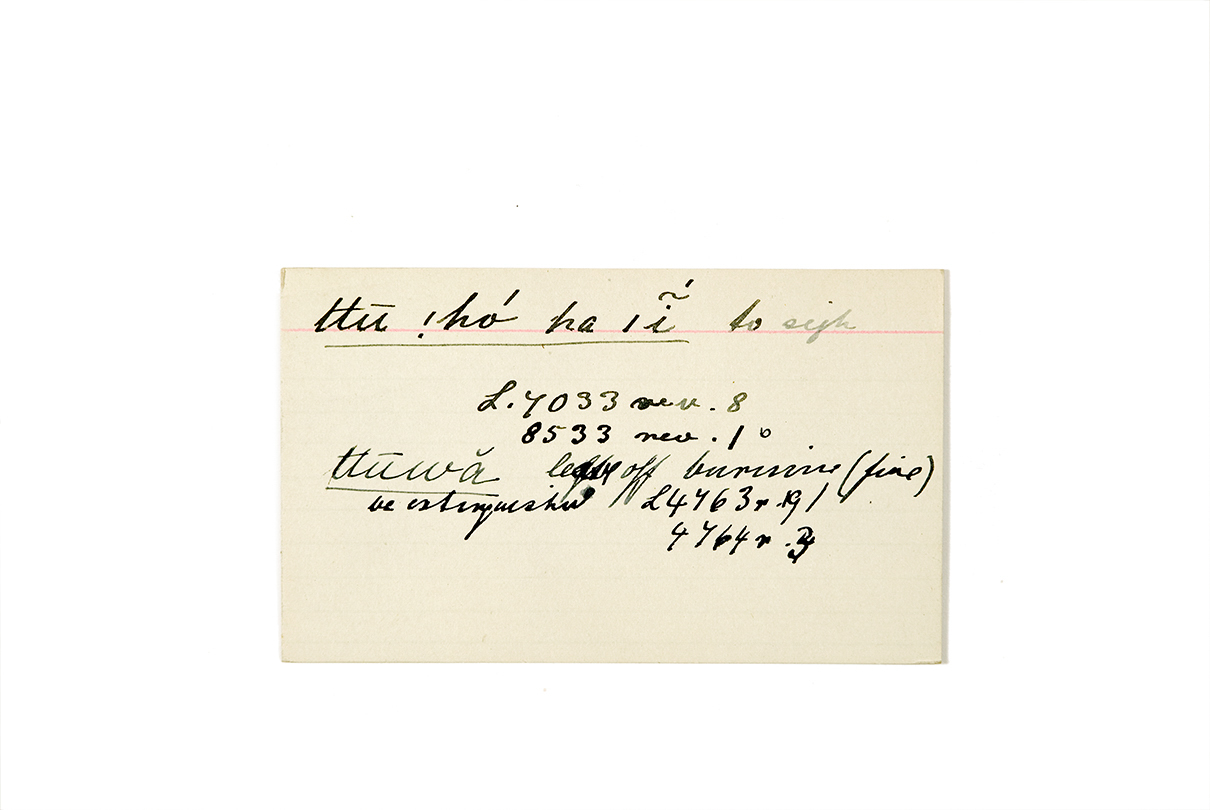 ttū !hó ha |ĩ́ to sigh
L. 7033 rev. 8
8533 rev. 1°
ttūwǎ off burning (fire)
be extinguished L4763 r.
4764 r.